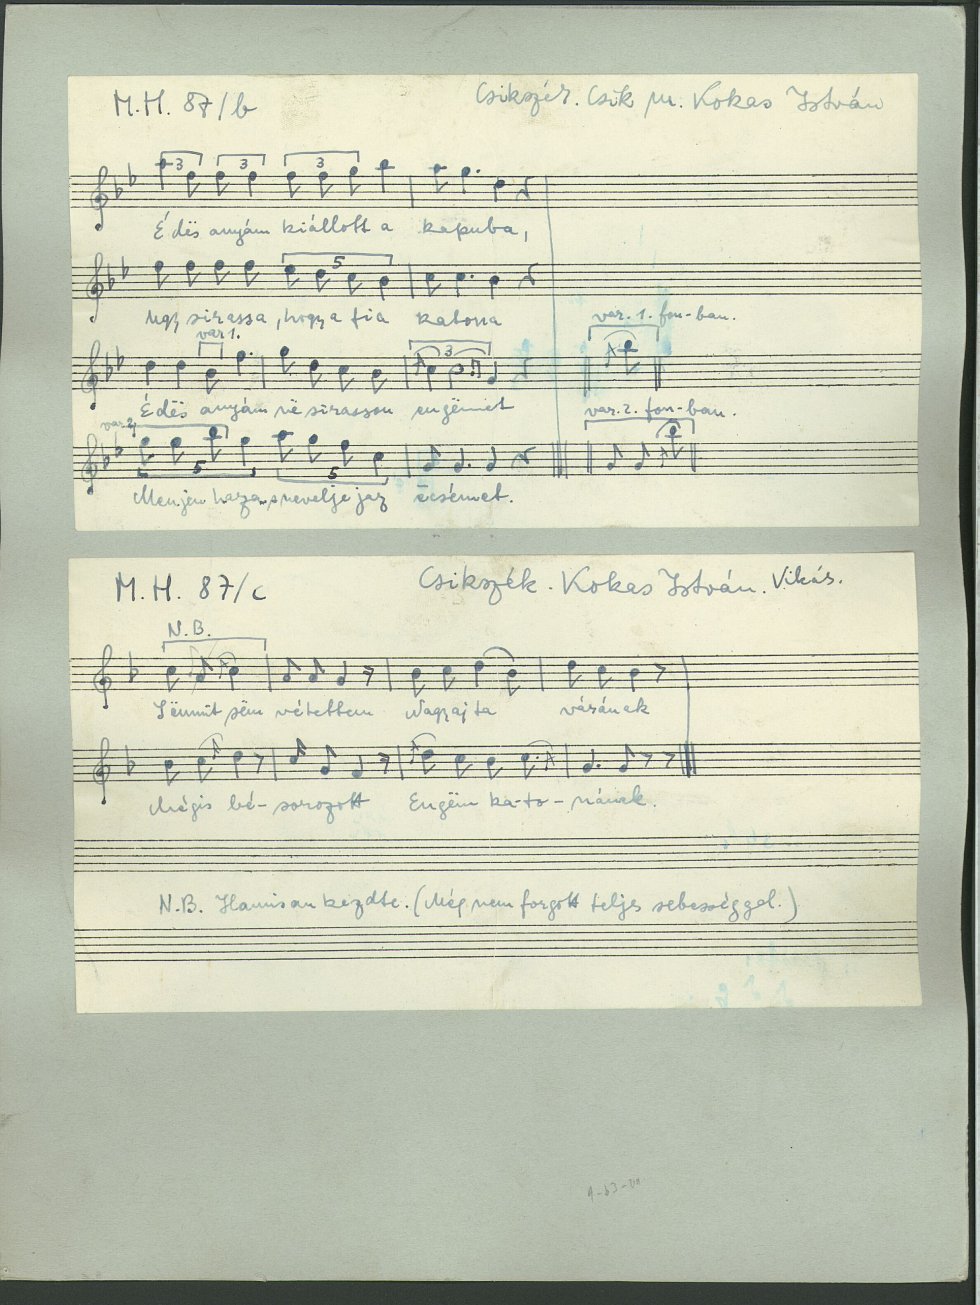 M.H. 87/b
Csikszék. Csik m. Kokas István
3 3 3
Édës anyám kiállott a kapuba,
5
Ugy sirassa, hogy a fia katona
var. 1. fon-ban.
var 1.
3
Édës anyám në sirasson engëmet
var. 2. fon-ban.
var. 2.
5 5
Menjen haza, s nevelje jaz ëcsémet.
M.H. 87/c
Csikszék. Kokas István. Vikár.
N.B.
Sëmmit sëm vétettem Nagyajta várának
Mégis bé- sorozott Engëm ka-to-nának.
N.B. Hamisan kezdte. (Még nem forgott teljes sebességgel.)